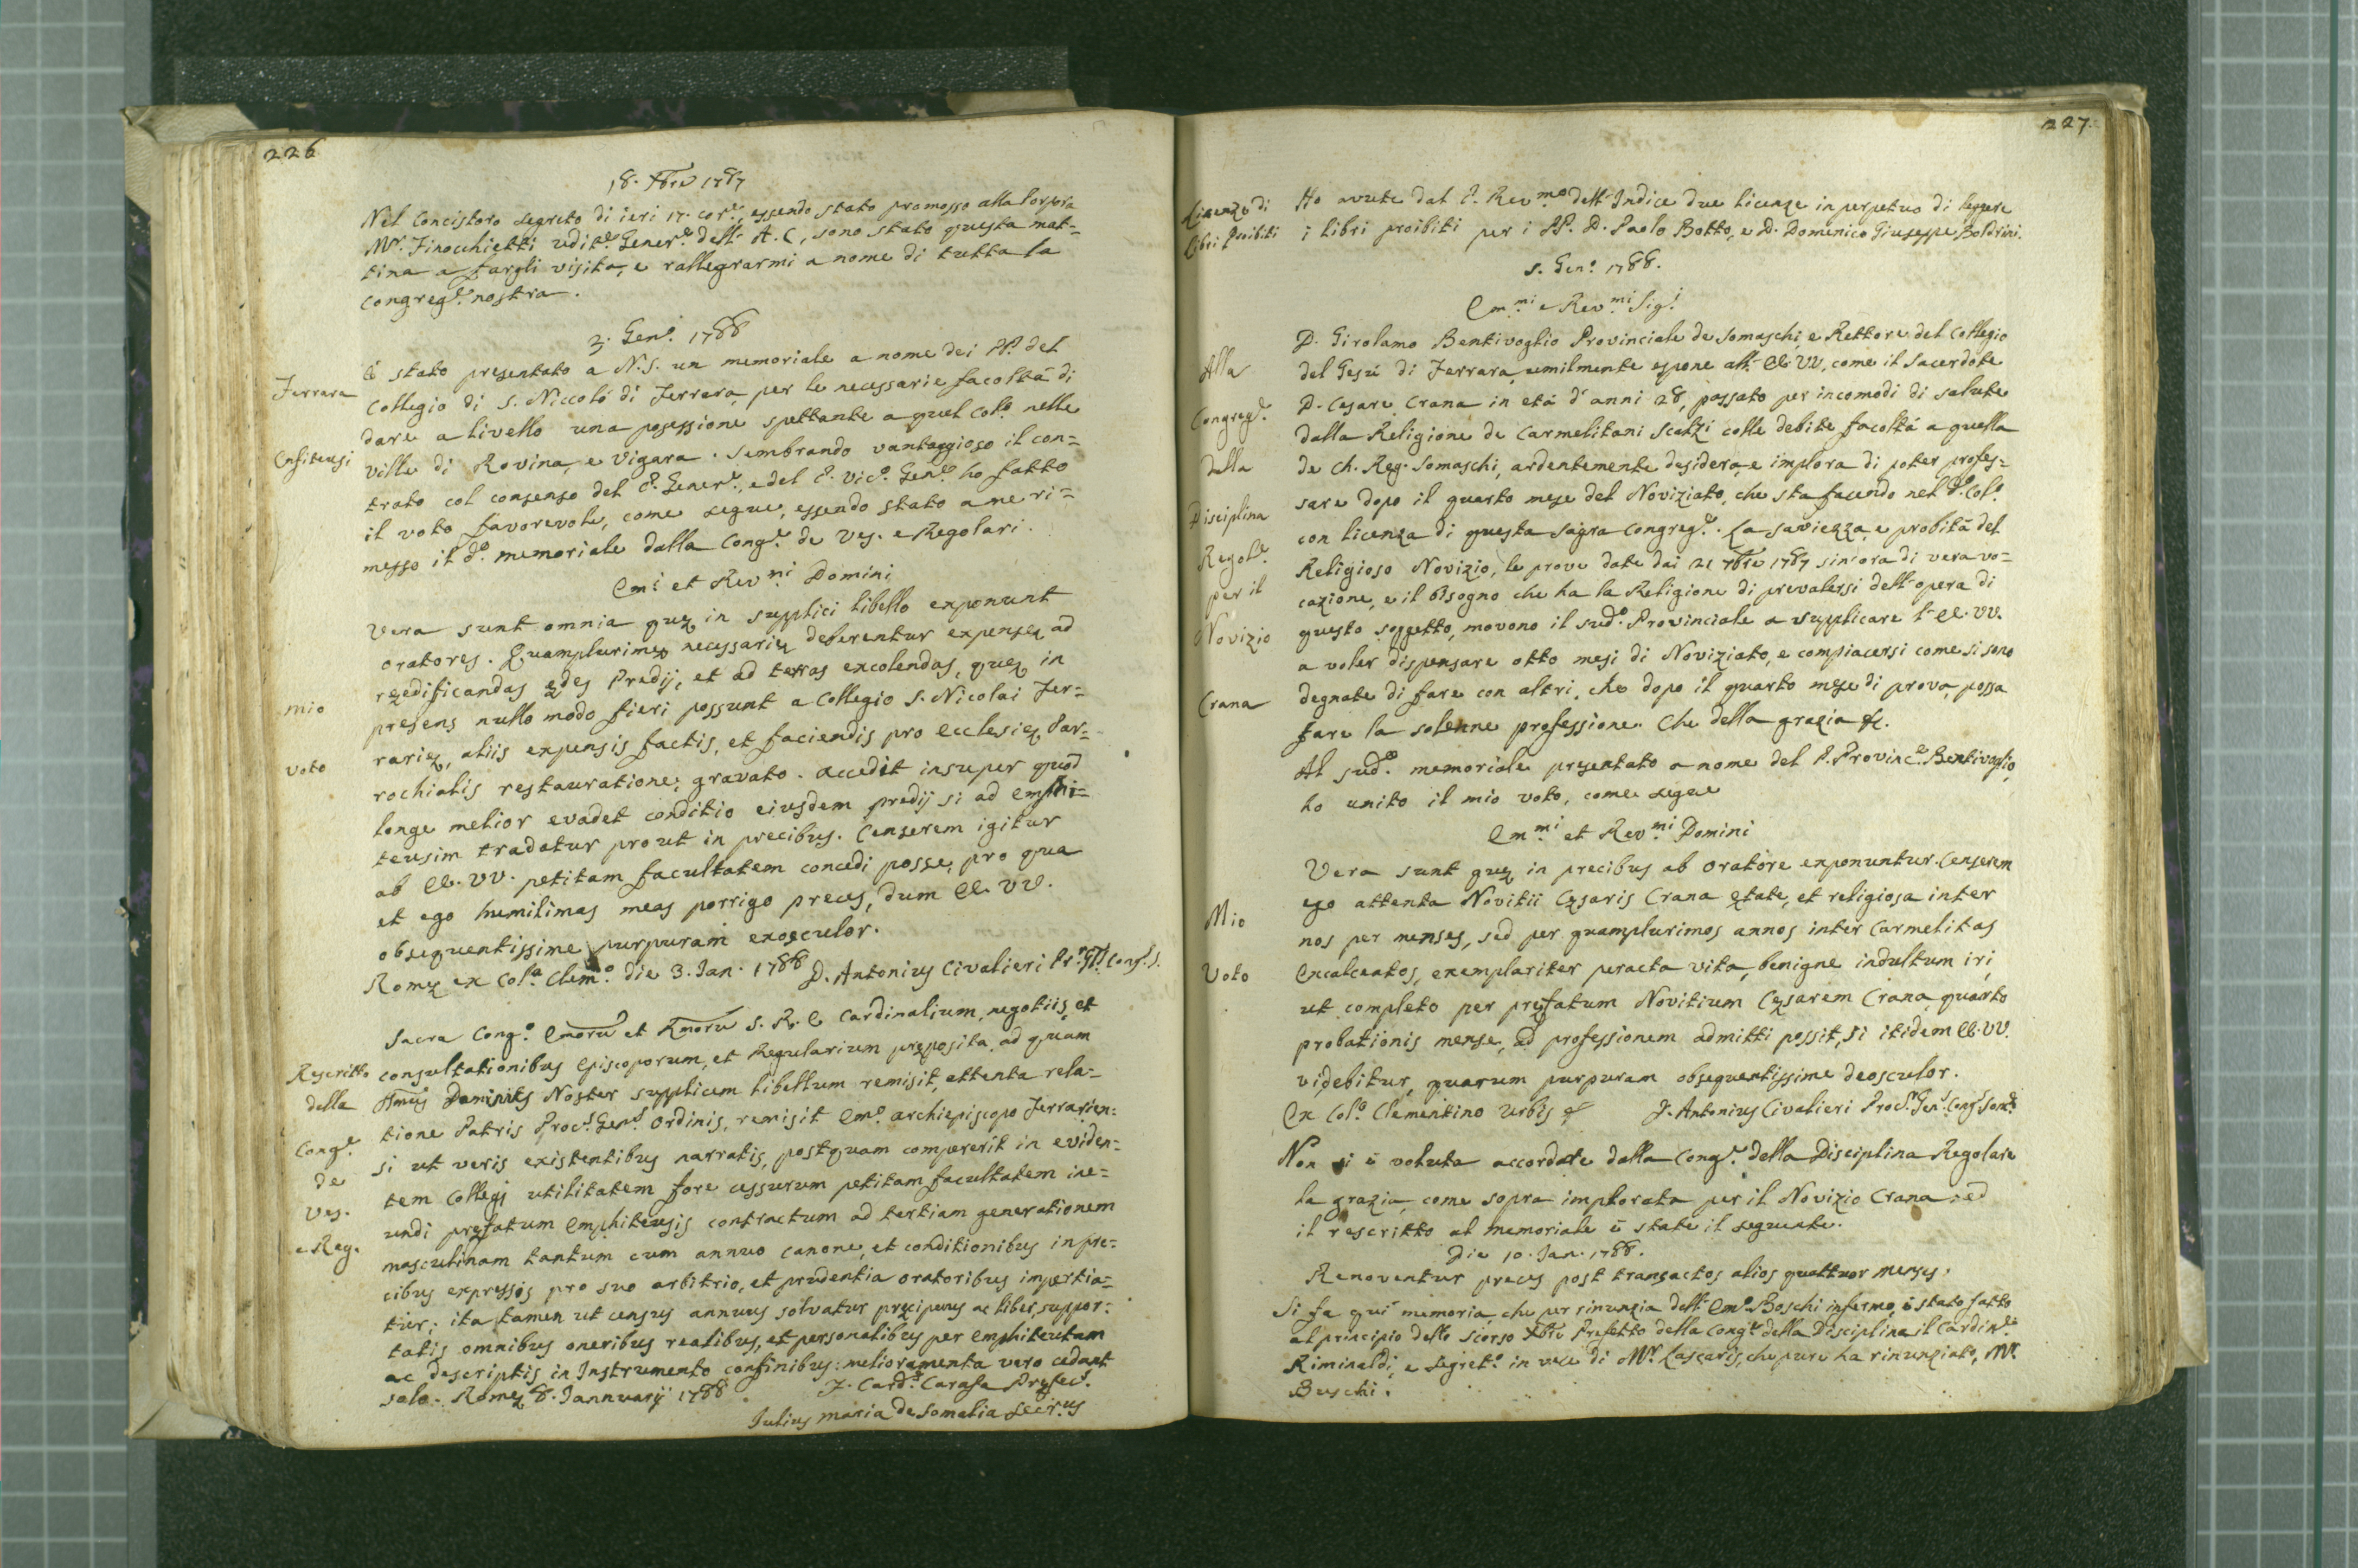 226
18. Xbre 1787
Nel Concistoro segreto di ieri 17. cor.e, essendo stato promosso alla Porpora
Mr. Finocchietti udit.e Gener.e dell' A. C, sono stato questa mat=
tina a fargli visita, e rallegrarmi a nome di tutta la
congreg.e nostra.
3. Gen.o 1788
Ferrara
È stato presentato a N.S. un memoriale a nome dei PP. del
Collegio di S. Niccolò di Ferrara per le necessarie facoltà di
dare a livello una posessione spettante a quel Col.o nelle
Enfiteusi
ville di Rovina, e Vigara. Sembrando vantaggioso il con=
trato col consenso del P. Gener.e, e del P. Vic.o Gen.e ho fatto
il voto favorevole, come segue, essendo stato a me ri=
messo il d.o memoriale dalla Cong.e de Ves. e Regolari.
Em.i et Rev.mi Domini
Vera sunt omnia quę in supplici libello exponunt
oratores. Quamplurimę necessarię deberentur expensę ad
reędificandas ędes Predij, et ad terras excolendas, quę in
mio
presens nullo modo fieri possunt a Collegio S. Nicolai Fer=
rarię, aliis expensis factis, et faciendis pro Ecclesię Par=
voto
rochialis restauratione, gravato. accedit insuper quod
longe melior evadet conditio ejusdem predij si ad Emphi=
teusim tradatur prout in precibus. Censerem igitur
ab EE. VV. petitam facultatem concedi posse, pro qua
et ego humilimas meas porrigo preces, dum EE. VV.
obsequentissime purpuram exosculor.
Romę ex Col.o Clem.o die 3. Jan. 1788 D. Antonius Civalieri Pr. G. Cong. S.
Sacra Cong.o Emoru et Rmoru S. R. E Cardinalium, negotiis, et
Rescritto
consultationibus Episcoporum, et Regularium pręposita, ad quam
della
Smus Dominus Noster supplicem libellum remisit, attenta rela=
tione Patris Proc.s Gen.s Ordinis, remisit Em.o archiepiscopo Ferrarien=
Cong.e
si ut veris existentibus narratis, postquam compererit in eviden=
de
tem Collegj utilitatem fore cessurum petitam facultatem ine=
Ves.
undi pręfatum Emphiteusis contractum ad tertiam generationem
e Reg.
masculinam tantum cum annuo canone, et conditionibus in pre=
cibus expressis pro suo arbitrio, et prudentia oratoribus impertia=
tur; ita tamen ut census annuus solvatur pręcipuus ac liber, suppor=
tatis omnibus oneribus realibus, et personalibus per Emphiteutam
ac descriptis in Instrumento confinibus: melioramenta vero cedant
solo. Romę 8. Jannuarij 1788 F. Card.s Carafa Pręfec.s
Julius Maria de Somalia Secr.us
227.
Licenze di
Ho avute dal P. Rev.mo dell' Indice due licenze in perpetuo di leggere
Libri Proibiti
i libri proibiti per i PP. D. Paolo Botto, e D. Domenico Giuseppe Boldrini.
5. Gen.o 1788.
Em.mi e Rev.mi Sig.i
D. Girolamo Bentivoglio Provinciale de Somaschi, e Rettore del Collegio
Alla
del Gesù di Ferrara, umilmente espone all' EE. VV, come il Sacerdote
D. Cesare Crana in età d'anni 28, passato per incomodi di salute
Congreg.e
dalla Religione de Carmelitani Scalzi colle debite facoltà a quella
dalla
de Ch. Reg. Somaschi, ardentemente desidera, e implora di poter profes=
sare dopo il quarto mese del Noviziato, che sta facendo nel d.o Col.o
Disciplina
con licenza di questa Sagra Congreg.e. La saviezza, e probità del
Regol.e
Religioso Novizio, le prove date dai 21 7bre 1787 sin'ora di vera vo=
per il
cazione, e il bisogno che ha la Religione di prevalersi dell'opera di
Novizio
questo soggetto, movono il sud.o Provinciale a supplicare l' EE. VV.
a voler dispensare otto mesi di Noviziato, e compiacersi come si sono
Crana
degnate di fare con altri, che dopo il quarto mese di prova, possa
fare la solenne professione. Che della grazia &c.
Al sud.o memoriale presentato a nome del P. Provinc.e Bentivoglio,
ho unito il mio voto, come segue
Em.mi et Rev.mi Domini
Vera sunt quę in precibus ab oratore exponuntur. Censerem
Mio
ego attenta Novitii Cęsaris Crana ętate, et religiosa inter
nos per menses, sed per quamplurimos annos inter Carmelitas
Voto
Excalceatos, exemplariter peracta vita, benigne indultum iri,
ut completo per pręfatum Novitium Cęsarem Crana quarto
probationis mense, ad professionem admitti possit, si itidem EE. VV.
videbitur, quarum purpuram obsequentissime deosculor.
Ex Col.o Clementino Urbis &c J. Antonius Civalieri Proc.r Gen.s Cong.s Som.ę
Non si è voluta accordare dalla Cong.e della Disciplina Regolare
la grazia, come sopra implorata per il Novizio Crana, ed
il rescritto al memoriale è stato il seguente.
Die 10. Jan. 1788.
Renoventur preces post transactos alios quattuor menses.
Si fa quì memoria, che per rinunzia dell' Em.o Boschi infermo, è stato fatto
al principio dello scorso Xbre Prefetto della Cong.e della Disciplina il Cardin.e
Riminaldi, e Segret.o in vece di Mr. Lascaris, che pure ha rinunziato, Mr.
Buschi.